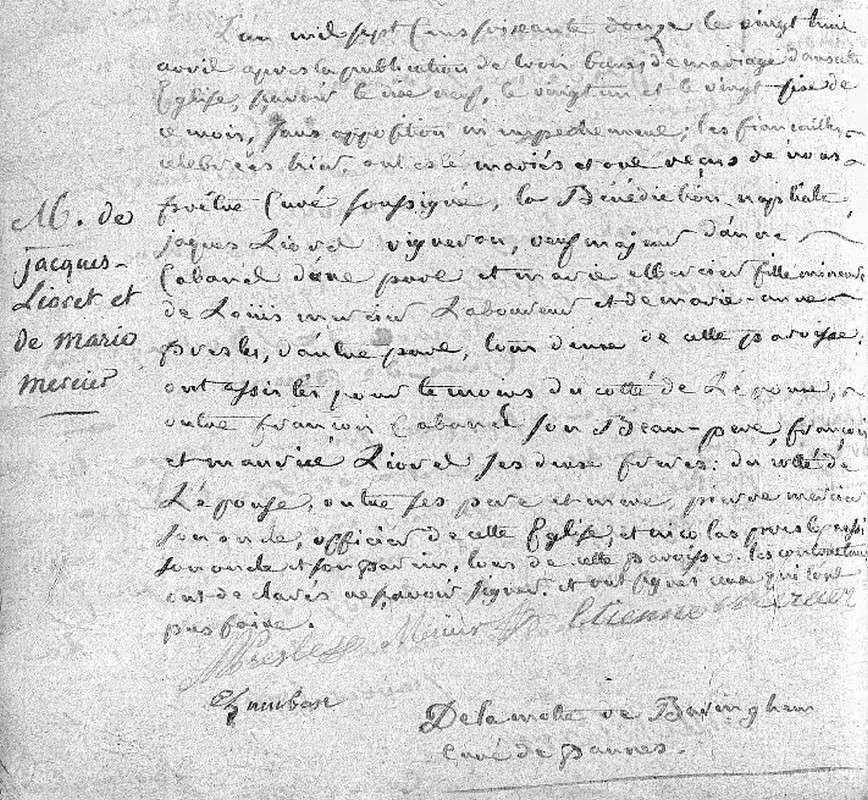 L'an mil sept Cens soixante douze le vingt huit
avril apres la publication de trois bans de mariage dans cette
Eglise, sçavoir le dix neuf, le vingt un et le vingt-six de
ce mois, sans opposition ni empechement; les fiançailles
celebrées hier, ont esté mariés et ont reçus de nous
prêtre Curé soussigné, la Bénédiction nuptiale
jaques Lioret vigneron, veuf majeur d'anne
Cabaret d'une part et marie Mercier fille mineure
de Loüis mercier Laboureur et de marie-anne
presles, d'autre part, tous deux de cette paroisse,
ont assistés pour temoins du cotté de L'epoux,
outre françois Cabaret son Beau-pere, françois
et maurice Lioret ses deux freres: du cotté de
L'épouse, outre ses pere et mere, pierre mercier
son oncle, officier de cette Eglise, et nicolas presles aussi
son oncle et son parein, tous de cette paroisse. les contractans
ont declarés ne sçavoir signer. et ont signés ceux qui l'ont
pus faire.
M. de
jacques
Lioret et
de marie
mercier
Presles Mercier Etienne Mercier
Delamotte de Baringhem
Curé de pannes.